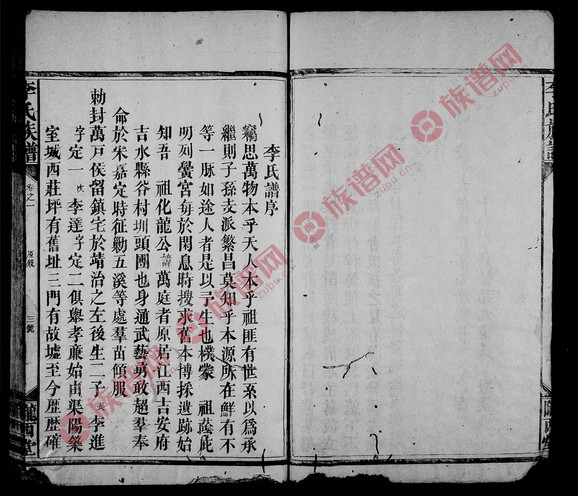 李氏譜序
竊思萬物本乎天人本乎祖匪有世系以為承
繼則子孫支派繁昌莫知乎本源所在鮮有不
等一脈如途人者是以予生也樸蒙 祖蔭庇
明列黌宮每於閑息時搜求舊本博採遺跡始
知吾 祖化龍公諱萬庭者原古江西吉安府
吉水縣谷村圳頭團也身通武藝勇政超羣奉
命於宋嘉定時征勦五溪等處羣苗傾服
勅封萬戸侯留鎮宅於靖治之左後生二子長李進
字定一次李達字定二俱舉孝廉始卣渠陽築
室城西莊坪有舊址三門有故墟至今歷歷確
李氏族譜
卷之一
三號
隴西堂
李氏族譜
隴西堂
族谱网
zupu.cn
族谱网
zupu.cn
族谱网
zupu.cn
族谱网